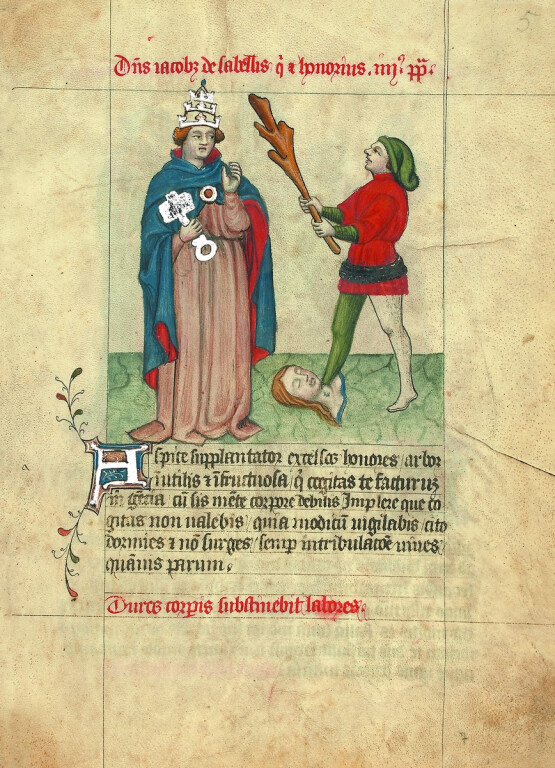 Dn̄s iacobꝫ de sabellis q̄ ⁊ honorius . iiij⁹ . pp̄ .
5
Aspice supplantator excelsos honores / arbor
inutilis ⁊ infructuosa / q̄ cogitas te facturuꝫ
cū sis mēte corpore debilis Implere que co
gitas non ualebis / quia modicū uigilabis / cito
dormies ⁊ nō surges / semp intribulacōe uiues
quāuis parum .
Duros corpis substinebit labores .